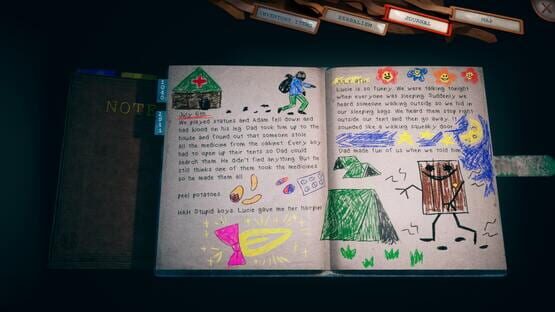 INVENTORY ITEMS
HERBALISM
JOURNAL
MAP
NOTE
2040
2041
July 6th
We played statues and Adam fell down and
had blood on his leg. Dad took him up to the
house and found out that someone stole
all the medicine from the cabinet. Every boy
had to open up their tents so Dad could
search them. He didn't find anything. But he
still thinks one of them took the medicines
so he made them all
peel potatoes.
HAH Stupid boys. Lucie gave me her hairpin!
Lucie is so funny. We were talking tonight
when everyone was sleeping. Suddenly we
heard someone walking outside so we hid in
our sleeping bags. We heard them stop right
outside our tent and then go away. It
sounded like a walking squeaky door.
Dad made fun of us when we told him.